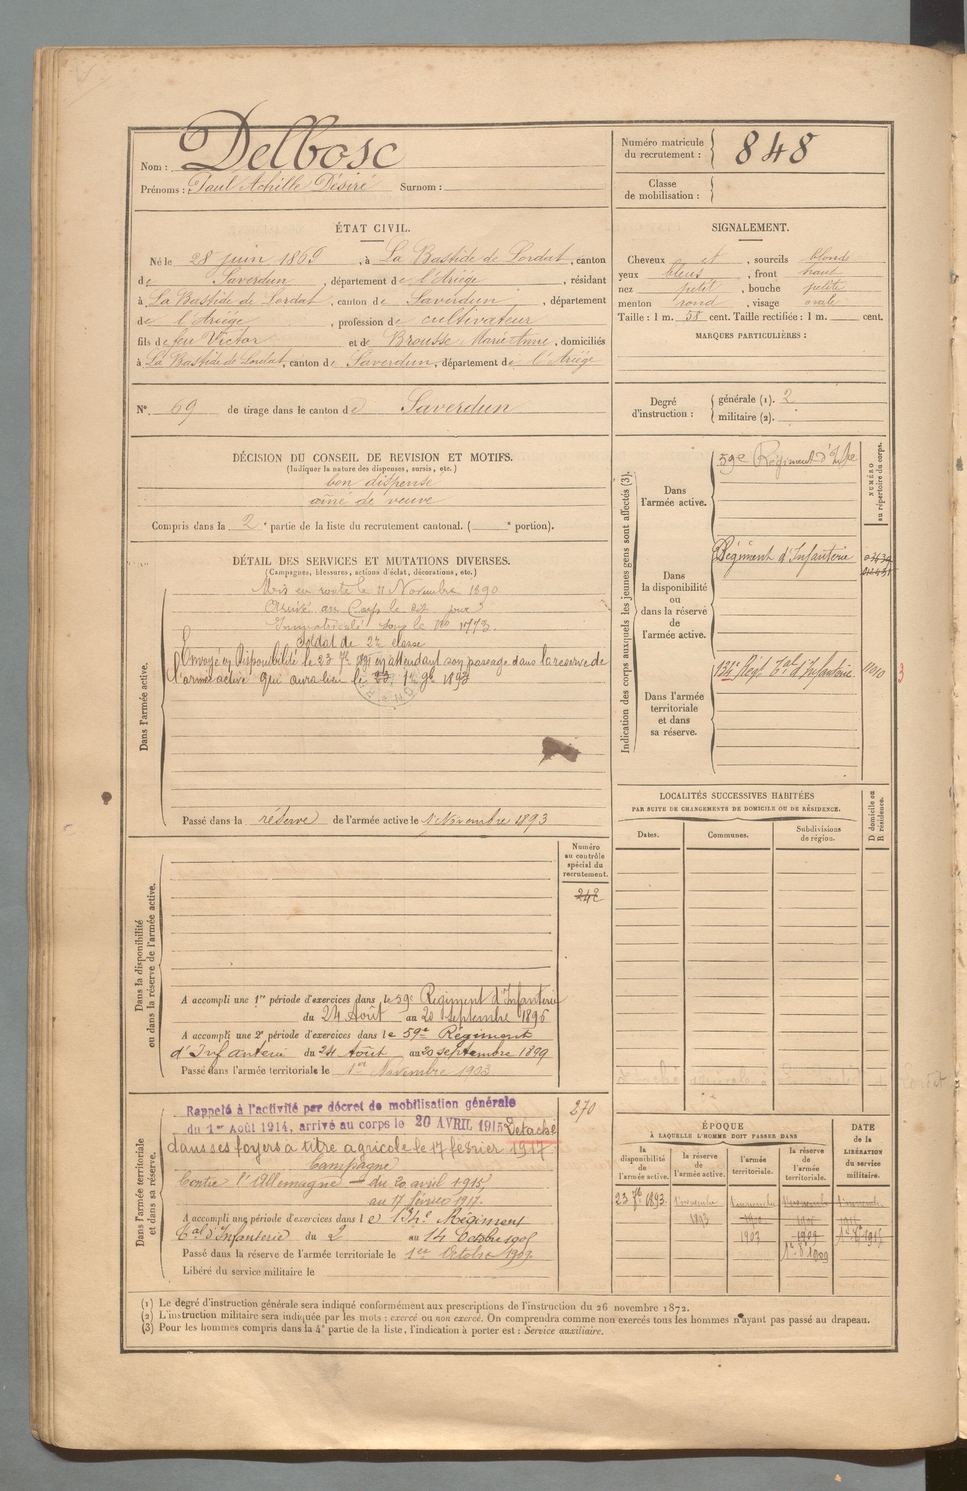 Nom : Delbosc
Prénoms : Paul Achille Désiré Surnom :
Numéro matricule
du recrutement : 848
Classe
de mobilisation :
ÉTAT CIVIL.
Né le 28 juin 1869, à La Bastide de Lordat, canton
de Saverdun, département de l'Ariège, résidant
à La Bastide de Lordat, canton de Saverdun, département
de l'Ariège, profession de cultivateur
fils de feu Victor et de Brousse Marie Anne, domiciliés
à La Bastide de Lordat, canton de Saverdun, département de l'Ariège
N° 69 de tirage dans le canton de Saverdun
SIGNALEMENT.
Cheveux et, sourcils blonds
yeux bleus, front haut
nez petit, bouche petite
menton rond, visage ovale
Taille : 1 m. 58 cent. Taille rectifiée : 1 m. cent.
MARQUES PARTICULIÈRES :
Degré
d'instruction :
générale (1). 2
militaire (2).
DÉCISION DU CONSEIL DE REVISION ET MOTIFS.
(Indiquer la nature des dispenses, sursis, etc.)
bon dispense
ainé de veuve
Compris dans la 2e partie de la liste du recrutement cantonal. ( e portion).
DÉTAIL DES SERVICES ET MUTATIONS DIVERSES.
(Campagnes, blessures, actions d'éclat, décorations, etc.)
Dans l'armée active.
Mis en route le 11 Novembre 1890
Arrivé au Corps le dit jour
Immatriculé sous le No 1773.
Soldat de 2e classe
Envoyé en Disponibilité le 23 7bre 1891 en attendant son passage dans la réserve de
l'armée active qui aura lieu le 1er 9bre 1893
Passé dans la réserve de l'armée active le 1 Novembre 1893
Indication des corps auxquels les jeunes gens sont affectés (3).
NUMÉRO
au répertoire du corps.
Dans
l'armée active.
59e Régiment d'Infie
Dans
la disponibilité
ou
dans la réserve
de
l'armée active.
Régiment d'Infanterie
Dans l'armée
territoriale
et dans
sa réserve.
134e Régt Tal d'Infanterie
11010
3
LOCALITÉS SUCCESSIVES HABITÉES
PAR SUITE DE CHANGEMENTS DE DOMICILE OU DE RÉSIDENCE.
D domicile ou
R résidence.
Dates.
Communes.
Subdivisions
de région.
Dans la disponibilité
ou dans la réserve de l'armée active.
Numéro
au contrôle
spécial du
recrutement.
242
A accompli une 1re période d'exercices dans le 59e Régiment d'Infanterie
du 24 Août au 20 septembre 1896
A accompli une 2e période d'exercices dans le 59e Régiment
d'Infanterie du 24 Août au 20 septembre 1899
Passé dans l'armée territoriale le 1er Novembre 1903
Dans l'armée territoriale
et dans sa réserve.
270
Rappelé à l'activité par décret de mobilisation générale
du 1er Août 1914, arrivé au corps le 20 AVRIL 1915 Détaché
dans ses foyers à titre agricole le 17 février 1917
Campagne
Contre l'Allemagne du 20 avril 1915
au 17 février 1917.
A accompli une période d'exercices dans le 134e Régiment
Tal d'Infanterie du 2 au 14 Octobre 1905
Passé dans la réserve de l'armée territoriale le 1er Octobre
Libéré du service militaire le
ÉPOQUE
À LAQUELLE L'HOMME DOIT PASSER DANS
la
disponibilité
de
l'armée active.
la réserve
de
l'armée active.
l'armée
territoriale.
la réserve
de
l'armée
territoriale.
DATE
de la
LIBÉRATION
du service
militaire.
23 7bre 1893. 1 novembre 1893
1903
1909
(1) Le degré d'instruction générale sera indiqué conformément aux prescriptions de l'instruction du 26 novembre 1872.
(2) L'instruction militaire sera indiquée par les mots : exercé ou non exercé. On comprendra comme non exercés tous les hommes n'ayant pas passé au drapeau.
(3) Pour les hommes compris dans la 4e partie de la liste, l'indication à porter est : Service auxiliaire.